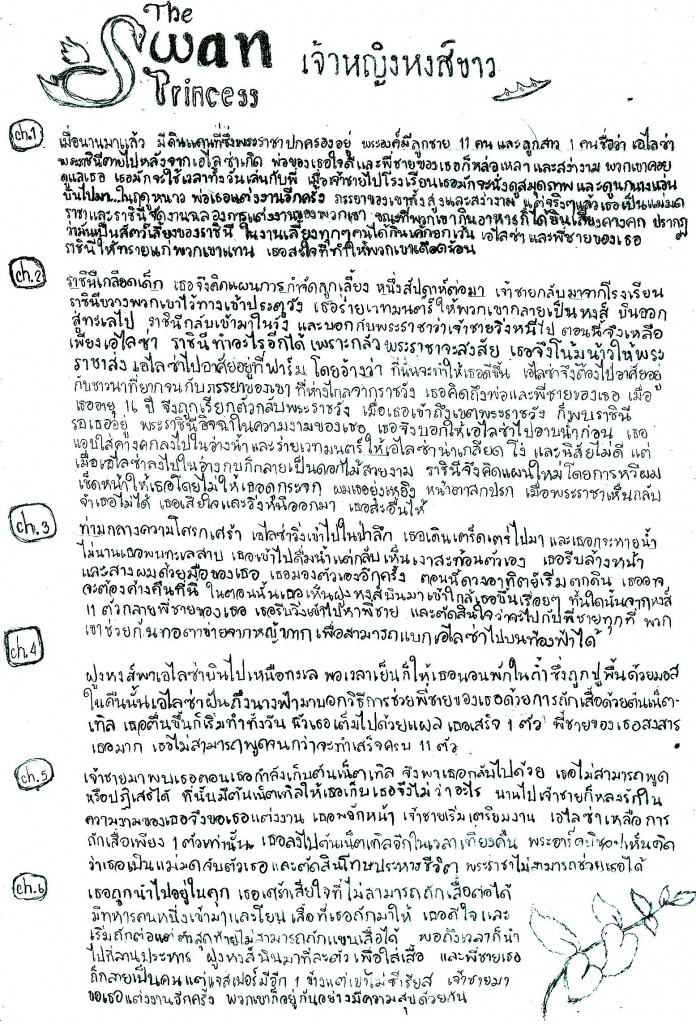 The
Swan
Princess
เจ้าหญิงหงส์ขาว
ch.1
เมื่อนานมาแล้ว มีดินแดนที่ซึ่งพระราชาปกครองอยู่ พระองค์มีลูกชาย 11 คน และลูกสาว 1 คนชื่อว่า เอไลซ่า
พระราชินีตายไปหลังจากเอไลซ่าเกิด พ่อของเธอใจดีและพี่ชายของเธอก็หล่อเหลา และสง่างาม พวกเขาคอย
ดูแลเธอ เธอมักจะใช้เวลาทั้งวันเล่นกับพี่ เมื่อเจ้าชายไปโรงเรียนเธอมักจะนั่งดูสมุดภาพ และดูนกนางแอ่น
บินไปมา...ในฤดูหนาว พ่อเธอแต่งงานอีกครั้ง ภรรยาของเขาทั้งสูงและสง่างาม แต่จริงๆแล้วเธอเป็นแม่มด
ราชาและราชินีจัดงานฉลองการแต่งงานของพวกเขา ขณะที่พวกเขากินอาหารก็ได้ยินเสียงคางคก ปรากฏ
ว่ามันเป็นสัตว์เลี้ยงของราชินี ในงานเลี้ยงทุกๆคนได้กินเค้กยกเว้น เอไลซ่า และพี่ชายของเธอ
ราชินีให้ทรายแก่พวกเขาแทน เธอสะใจที่ทำให้พวกเขาเดือดร้อน
ch.2
ราชินีเกลียดเด็ก เธอจึงคิดแผนการกำจัดลูกเลี้ยง หนึ่งสัปดาห์ต่อมา เจ้าชายกลับมาจากโรงเรียน
ราชินีขวางพวกเขาไว้ทางเข้าประตูวัง เธอร่ายเวทมนตร์ให้พวกเขากลายเป็นหงส์ บินออก
สู่ทะเลไป ราชินีกลับเข้ามาในวัง และบอกกับพระราชาว่าเจ้าชายวิ่งหนีไป ตอนนี้จึงเหลือ
เพียงเอไลซา ราชินีทำอะไรอีกไม่ได้ เพราะกลัวพระราชาจะสงสัย เธอจึงโน้มน้าวให้พระ
ราชาส่ง เอไลซ่าไปอาศัยอยู่ที่ฟาร์ม โดยอ้างว่า ที่นั่นจะทำให้เธอดีขึ้น เอไลซ่าจึงต้องไปอาศัยอยู่
กับชาวนาที่ยากจนกับภรรยาของเขา ที่ห่างไกลจากราชวัง เธอคิดถึงพ่อและพี่ชายของเธอ เมื่อ
เธออายุ 16 ปี จึงถูกเรียกตัวกลับพระราชวัง เมื่อเธอเข้าถึงเขตพระราชวัง ก็พบราชินี
รอเธออยู่ พระราชินีอิจฉาในความงามของเธอ เธอจึงบอกให้เอไลซ่าไปอาบน้ำก่อน เธอ
แอบใส่คางคกลงไปในอ่างน้ำและร่ายเวทมนตร์ ให้เอไลซ่าน่าเกลียด โง่ และนิสัยไม่ดี แต่
เมื่อเอไลซ่าลงไปในอ่างกบก็กลายเป็นดอกไม้สวยงาม ราชินีจึงคิดแผนใหม่ โดยการหวีผม
เช็ดหน้าให้เธอโดยไม่ให้เธอดูกระจก ผมเธอยุ่งเหยิง หน้าตาสกปรก เมื่อพระราชาเห็นกลับ
จำเธอไม่ได้ เธอเสียใจและวิ่งหนีออกมา เธอสะอื้นไห้
ch.3
ท่ามกลางความโศกเศร้า เอไลซ่าวิ่งเข้าไปในป่าลึก เธอเดินเตร็ดเตร่ไปมา และเธอกระหายน้ำ
ไม่นานเธอพบทะเลสาบ เธอเข้าไปดื่มน้ำแต่กลับเห็นเงาสะท้อนตัวเอง เธอรีบล้างหน้า
และสางผมด้วยมือของเธอ เธอมองตัวเองอีกครั้ง ตอนนี้ดวงอาทิตย์เริ่มตกดิน เธออาจ
จะต้องค้างคืนที่นี่ ในตอนนั้นเธอเห็นฝูงหงส์บินมาเข้าใกล้เธอขึ้นเรื่อยๆ ทันใดนั้นจากหงส์
11 ตัวกลายพี่ชายของเธอ เธอรีบวิ่งเข้าไปหาพี่ชาย และตัดสินใจว่าจะไปกับพี่ชายทุกที่ พวก
เขาช่วยกันทอตาข่ายจากหญ้า เพื่อสามารถแบกเอไลซ่าไปบนท้องฟ้าได้
ch.4
ฝูงหงส์พาเอไลซ่าบินไปเหนือทะเล พอเวลาเย็นก็ให้เธอนอนพักในถ้ำซึ่งถูกปูพื้นด้วยมอส
ในคืนนั้นเอไลซ่าฝันถึงนางฟ้ามาบอกวิธีการช่วยพี่ชายของเธอด้วยการถักเสื้อด้วยต้นเน็ต-
เทิล เธอตื่นขึ้นก็เริ่มทำทั้งวัน นิ้วเธอเต็มไปด้วยแผล เธอเสร็จ 1 ตัว พี่ชายของเธอสงสาร
เธอมาก เธอไม่สามารถพูดจนกว่าจะทำเสร็จครบ 11 ตัว
ch.5
เจ้าชายมาพบเธอตอนเธอกำลังเก็บต้นเน็ตเทิล จึงพาเธอกลับไปด้วย เธอไม่สามารถพูด
หรือปฏิเสธได้ ที่นั้นมีต้นเน็ตเทิลให้เธอเก็บ เธอจึงไม่ว่าอะไร นานไปเจ้าชายก็หลงรักใน
ความงามของเธอจึงขอเธอแต่งงาน เธอพยักหน้า เจ้าชายเริ่มเตรียมงาน เอไลซ่าเหลือการ
ถักเสื้อเพียง 1 ตัวเท่านั้น เธอลงไปต้นเน็ตเทิลอีกในเวลาเที่ยงคืน พระอาร์คบิชอปเห็นคิด
ว่าเธอเป็นแม่มดจับตัวเธอ และตัดสินโทษประหารชีวิต พระราชาไม่สามารถช่วยเธอได้
ch.6
เธอถูกนำไปอยู่ในคุก เธอเศร้าเสียใจที่ไม่สามารถถักเสื้อต่อได้
มีทหารคนหนึ่งเข้ามาและโยน เสื้อที่เธอถักมาให้ เธอดีใจ และ
เริ่มถักต่อแต่ ตัวสุดท้ายไม่สามารถถักแขนเสื้อได้ พอถึงเวลาก็นำ
ไปที่ลานประหาร ฝูงหงส์บินมาทีละตัว เพื่อใส่เสื้อ และพี่ชายเธอ
ก็กลายเป็นคน แต่แจสเปอร์มีปีก 1 ข้างแต่เขาไม่ซีเรียส เจ้าชายมา
ขอเธอแต่งงานอีกครั้ง พวกเขาก็อยู่กันอย่างมีความสุขด้วยกัน